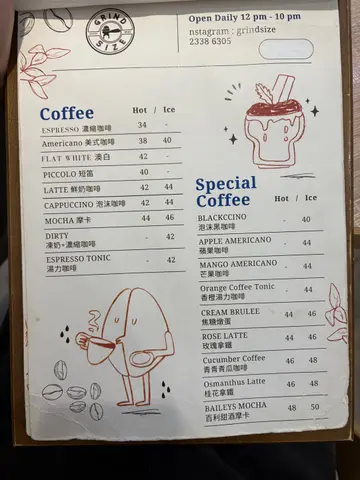 GRIND
SIZE
Open Daily 12 pm - 10 pm
nstagram : grindsize
2338 6305
Coffee
Hot / Ice
ESPRESSO 濃縮咖啡 34 -
Americano 美式咖啡 38 40
FLAT WHITE 澳白 42 -
PICCOLO 短笛 40 -
LATTE 鮮奶咖啡 42 44
CAPPUCCINO 泡沫咖啡 42 44
MOCHA 摩卡 44 46
DIRTY - 42
凍奶+濃縮咖啡
ESPRESSO TONIC - 42
湯力咖啡
Special
Coffee
Hot / Ice
BLACKCCINO - 40
泡沫黑咖啡
APPLE AMERICANO - 44
蘋果咖啡
MANGO AMERICANO - 44
芒果咖啡
Orange Coffee Tonic - 44
香橙湯力咖啡
CREAM BRULEE 44 46
焦糖燉蛋
ROSE LATTE 44 46
玫瑰拿鐵
Cucumber Coffee 46 48
青青青瓜咖啡
Osmanthus Latte 46 48
桂花拿鐵
BAILEYS MOCHA 48 50
百利甜酒摩卡